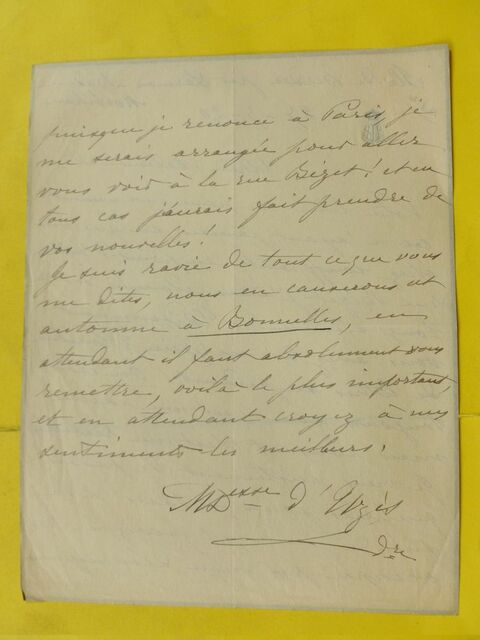 puisque je renonce à Paris, je
me serais arrangée pour aller
vous voir à la rue Bizet! et en
tous cas j'aurais fait prendre de
vos nouvelles!
Je suis ravie de tout ce que vous
me dites, nous en causerons cet
automne à Bonnelles, en
attendant il faut absolument vous
remettre, voilà le plus important,
et en attendant croyez à mes
sentiments les meilleurs.
Desse d'Uzès